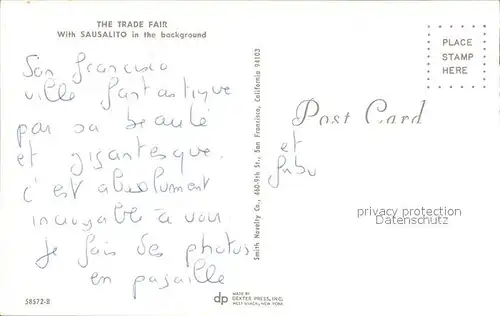 THE TRADE FAIR
With SAUSALITO in the background
San Francisco
ville fantastique
par sa beauté
et gigantesque.
c'est absolument
incroyable à voir.
je fais des photos
en pagaille
58572-B
Smith Novelty Co., 460-9th St., San Francisco, California 94103
dp
MADE BY
DEXTER PRESS, INC.
WEST NYACK, NEW YORK
Post Card
PLACE
STAMP
HERE
et
privacy protection
Datenschutz